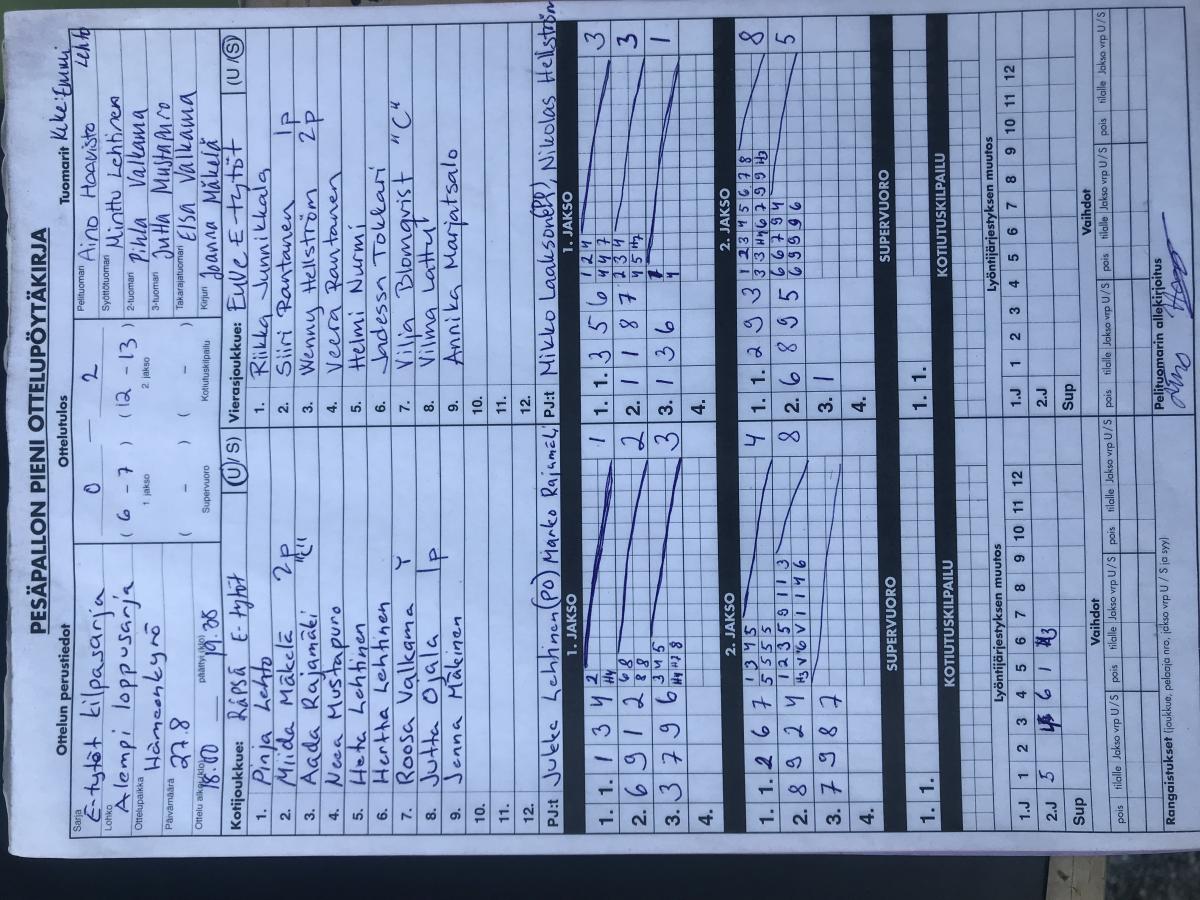 PESÄPALLON PIENI OTTELUPÖYTÄKIRJA
Ottelun perustiedot
Sarja
E-tytöt kilpasarja
Lohko
Alempi loppusarja
Ottelupaikka
Hämeenkyrö
Päivämäärä
27.8
Ottelu alkoi (klo) 18.00 päättyi (klo) 19.38
Ottelutulos
0 – 2
( 6 – 7 ) ( 12 – 13 )
1. jakso 2. jakso
( – ) ( – )
Supervuoro Kotiutuskilpailu
Tuomarit Keke: Emmi Lehto
Pelituomari Aino Haavisto
Syöttötuomari Minttu Lehtinen
2-tuomari Pihla Valkama
3-tuomari Jutta Mustapuro
Takarajatuomari Elsa Valkama
Kirjuri Joanna Mäkelä
Kotijoukkue: Räpsä E-tytöt (U / S)
1. Pinja Lehto
2. Miida Mäkelä 2p
3. Aada Rajamäki "C"
4. Neea Mustapuro
5. Heta Lehtinen
6. Hertta Lehtinen
7. Roosa Valkama Y
8. Jutta Ojala 1p
9. Jenna Mäkinen
10.
11.
12.
PJ:t Jukka Lehtinen (PO) Marko Rajamäki
Vierasjoukkue: EuVe E-tytöt (U / S)
1. Riikka Junnikkala
2. Siiri Rantanen 1p
3. Wenny Hellström 2p
4. Veera Rantanen
5. Helmi Nurmi
6. Jadessa Tokkari
7. Vilja Blomqvist "C"
8. Vilma Lattu
9. Annika Marjatsalo
10.
11.
12.
PJ:t Mikko Laaksonen, Nikolas Hellström
1. JAKSO
1. 1. 1 3 4 2 1
2. 6 9 1 2 6 8 8 8 2
3. 3 7 9 6 3 4 5 3
4.
1. JAKSO
1. 1. 3 5 6 1 2 4 4 4 7 3
2. 1 1 8 7 2 3 4 4 5 3
3. 1 3 6 4 1
4.
2. JAKSO
1. 1. 2 6 7 1 3 4 5 5 5 5 5 4
2. 8 9 2 4 1 2 3 5 9 1 1 3 8
3. 7 9 8 7
4.
2. JAKSO
1. 1. 2 9 3 1 2 3 4 5 6 7 8 8
2. 6 8 9 5 6 6 7 9 4 6 9 9 9 6 5
3. 1
4.
SUPERVUORO
1. 1.
SUPERVUORO
1. 1.
KOTIUTUSKILPAILU
KOTIUTUSKILPAILU
Lyöntijärjestyksen muutos
1 2 3 4 5 6 7 8 9 10 11 12
1.J
2.J 5 6 1
Sup
Lyöntijärjestyksen muutos
1 2 3 4 5 6 7 8 9 10 11 12
1.J
2.J
Sup
Vaihdot
pois tilalle Jakso vrp U / S pois tilalle Jakso vrp U / S pois tilalle Jakso vrp U / S
Vaihdot
pois tilalle Jakso vrp U / S pois tilalle Jakso vrp U / S pois tilalle Jakso vrp U / S
Rangaistukset (joukkue, pelaaja nro, jakso vrp U / S ja syy)
Pelituomarin allekirjoitus